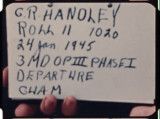 G.R HANDLEY
ROLL 11 1020
24 Jan 1945
3 MD OP III PHASE I
DEPARTURE
CHAM